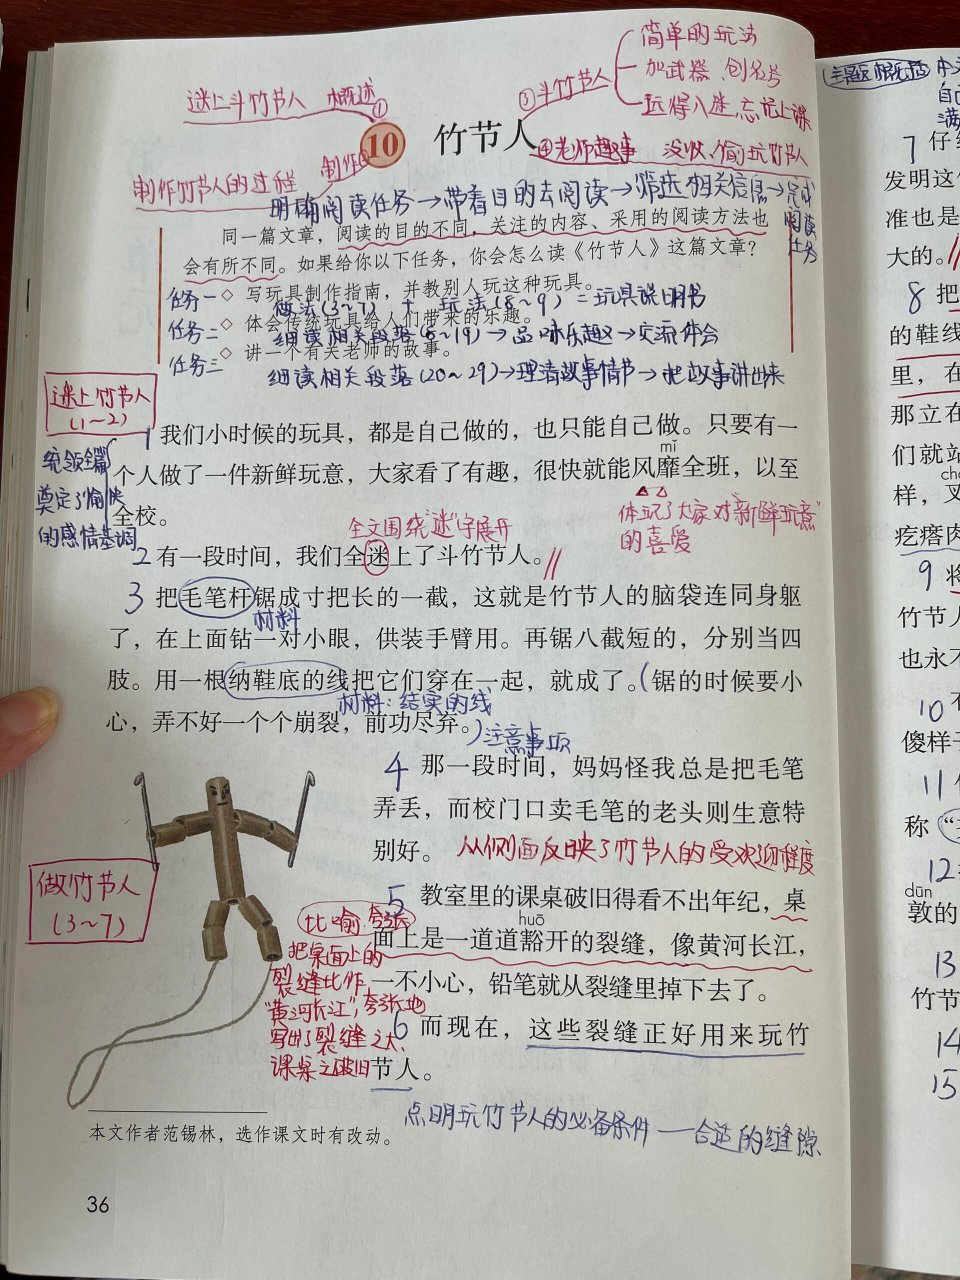 简单的玩法
③斗竹节人 加武器、创名号
玩得入迷,忘记上课
迷上斗竹节人 概述①
10 竹节人
④老师趣事 没收、偷玩竹节人
制作②
制作竹节人的过程
明确阅读任务→带着目的去阅读→筛选相关信息→完成
阅读
任务
同一篇文章，阅读的目的不同，关注的内容、采用的阅读方法也
会有所不同。如果给你以下任务，你会怎么读《竹节人》这篇文章？
任务一◇ 写玩具制作指南，并教别人玩这种玩具。
做法(3~7) + 玩法(8~9) =玩具说明书
任务二◇ 体会传统玩具给人们带来的乐趣。
细读相关段落(8~19)→品味乐趣→交流体会
任务三◇ 讲一个有关老师的故事。
细读相关段落(20~29)→理清故事情节→把故事讲出来
迷上竹节人
(1~2)
1 我们小时候的玩具，都是自己做的，也只能自己做。只要有一
mǐ
个人做了一件新鲜玩意，大家看了有趣，很快就能风靡全班，以至
全校。
统领全篇
奠定了愉快
的感情基调
体现了大家对“新鲜玩意”
的喜爱
全文围绕“迷”字展开
2 有一段时间，我们全迷上了斗竹节人。
3 把毛笔杆锯成寸把长的一截，这就是竹节人的脑袋连同身躯
材料
了，在上面钻一对小眼，供装手臂用。再锯八截短的，分别当四
肢。用一根纳鞋底的线把它们穿在一起，就成了。(锯的时候要小
材料：结实的线
心，弄不好一个个崩裂，前功尽弃。)注意事项
4 那一段时间，妈妈怪我总是把毛笔
弄丢，而校门口卖毛笔的老头则生意特
别好。 从侧面反映了竹节人的受欢迎程度
做竹节人
(3~7)
5 教室里的课桌破旧得看不出年纪，桌
huō
面上是一道道豁开的裂缝，像黄河长江，
一不小心，铅笔就从裂缝里掉下去了。
比喻 夸张
把桌面上的
裂缝比作
“黄河长江”，夸张地
写出了裂缝之大、
课桌之破旧
6 而现在，这些裂缝正好用来玩竹
节人。
点明玩竹节人的必备条件——合适的缝隙
本文作者范锡林，选作课文时有改动。
36
主题概括
自己
满
7 仔细
发明这
准也是
大的。
8 把
的鞋线
里，在
那立在
们就站
样，叉
疙瘩肉
9 将
竹节人
也永不
10 不
傻样子
11
称“
12
dūn
敦的
13
竹节
14
15